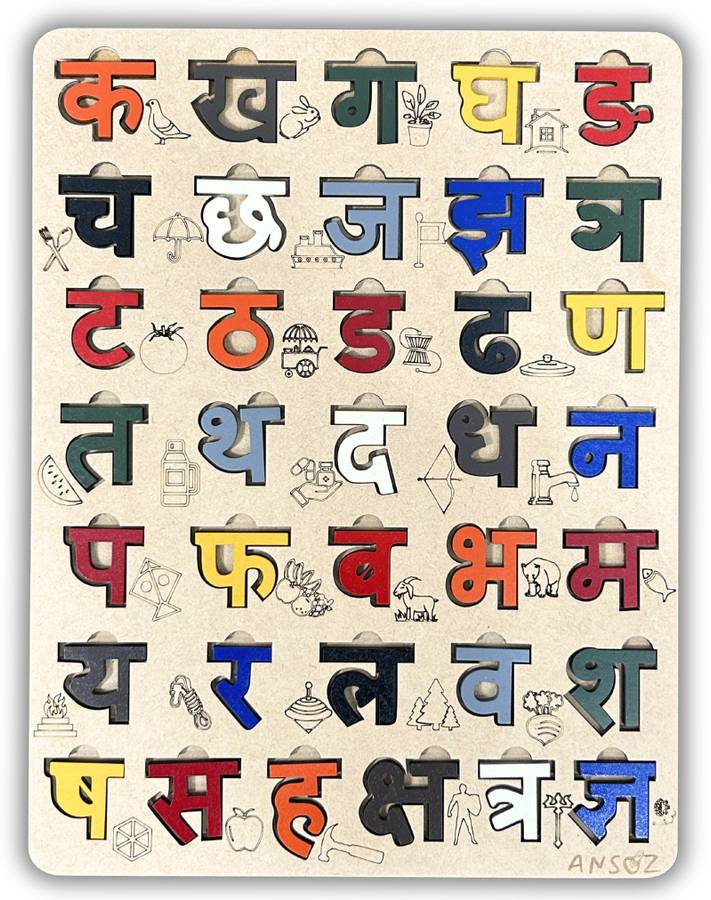 क ख ग घ ङ
च छ ज झ ञ
ट ठ ड ढ ण
त थ द ध न
प फ ब भ म
य र ल व श
ष स ह क्ष त्र ज्ञ
ANSOZ